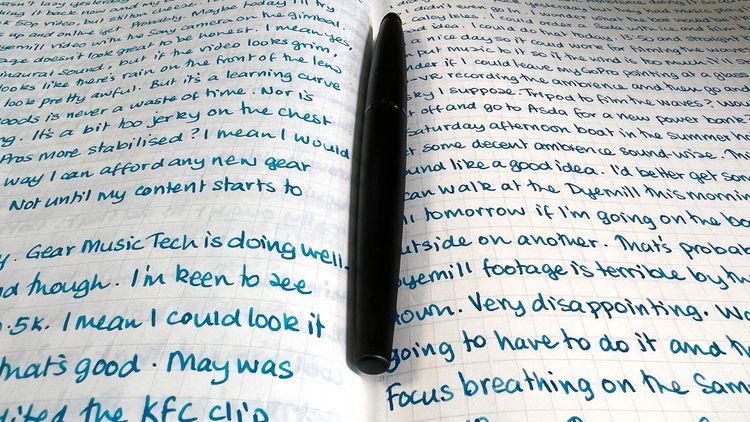 50p video, but
and online get. Probably. Maybe today I'll try
yemill video with the Sony camera on the gimbal
age doesn't look great to be honest. I mean yes,
naural sound, but if the video looks grim,
looks like there's rain on the front of the lens
look pretty awful. But it's a learning curve
oods is never a waste of time. Nor is
g. It's a bit too jerky on the chest
Pros more stabilised? I mean I would
way I can afford any new gear
Not until my content starts to
y. Gear Music Tech is doing well.
nd though. I'm keen to see
.5k. I mean I could look it
that's good. May was
dited the KFC clip
yesterday
idea. I could do that today. It's
nice day so it could work for filming the waves
put music to it so if the wind is too much it'll
nder if I could leave my GoPro pointing at a glass
VR recording the ambience and then go and
sky I suppose. Tripod to film the waves? Wou
t off and go to Asda for a new power bank
Saturday afternoon boat in the summer
t some decent ambience sound-wise. Th
und like a good idea. I'd better get som
can walk at the Dyemill this mornin
ll tomorrow if I'm going on the bo
utside on another. That's probab
yemill footage is terrible by
own. Very disappointing. Wa
going to have to do it and
Focus breathing on the Sam